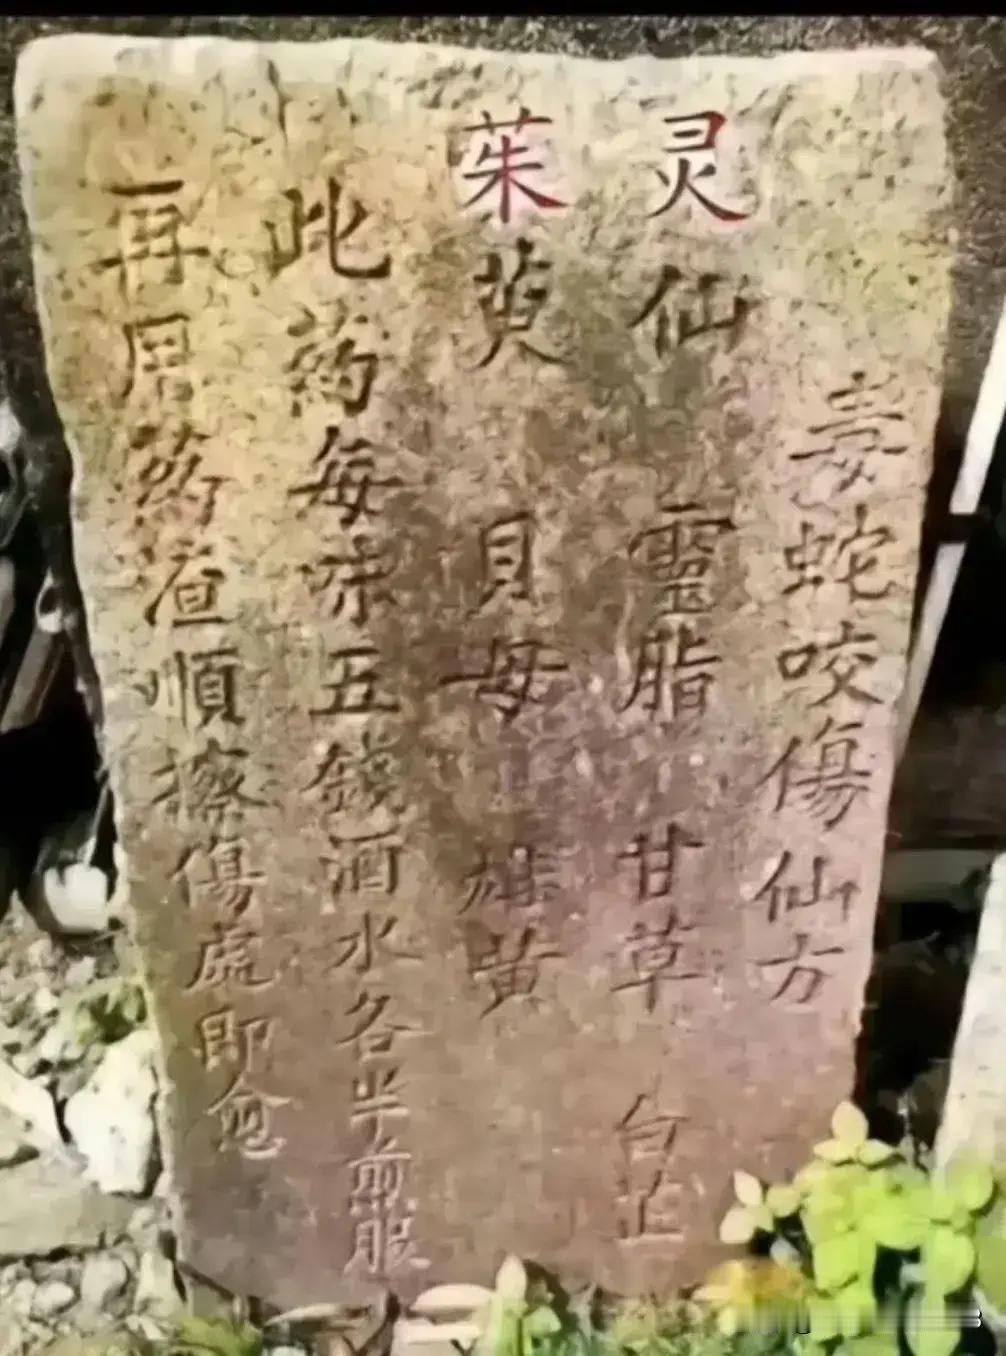 毒蛇咬傷仙方
灵仙 靈脂 甘草 白芷
茱萸 貝母 雄黃
此药每味五錢酒水各半煎服
再用药渣順擦傷處即愈